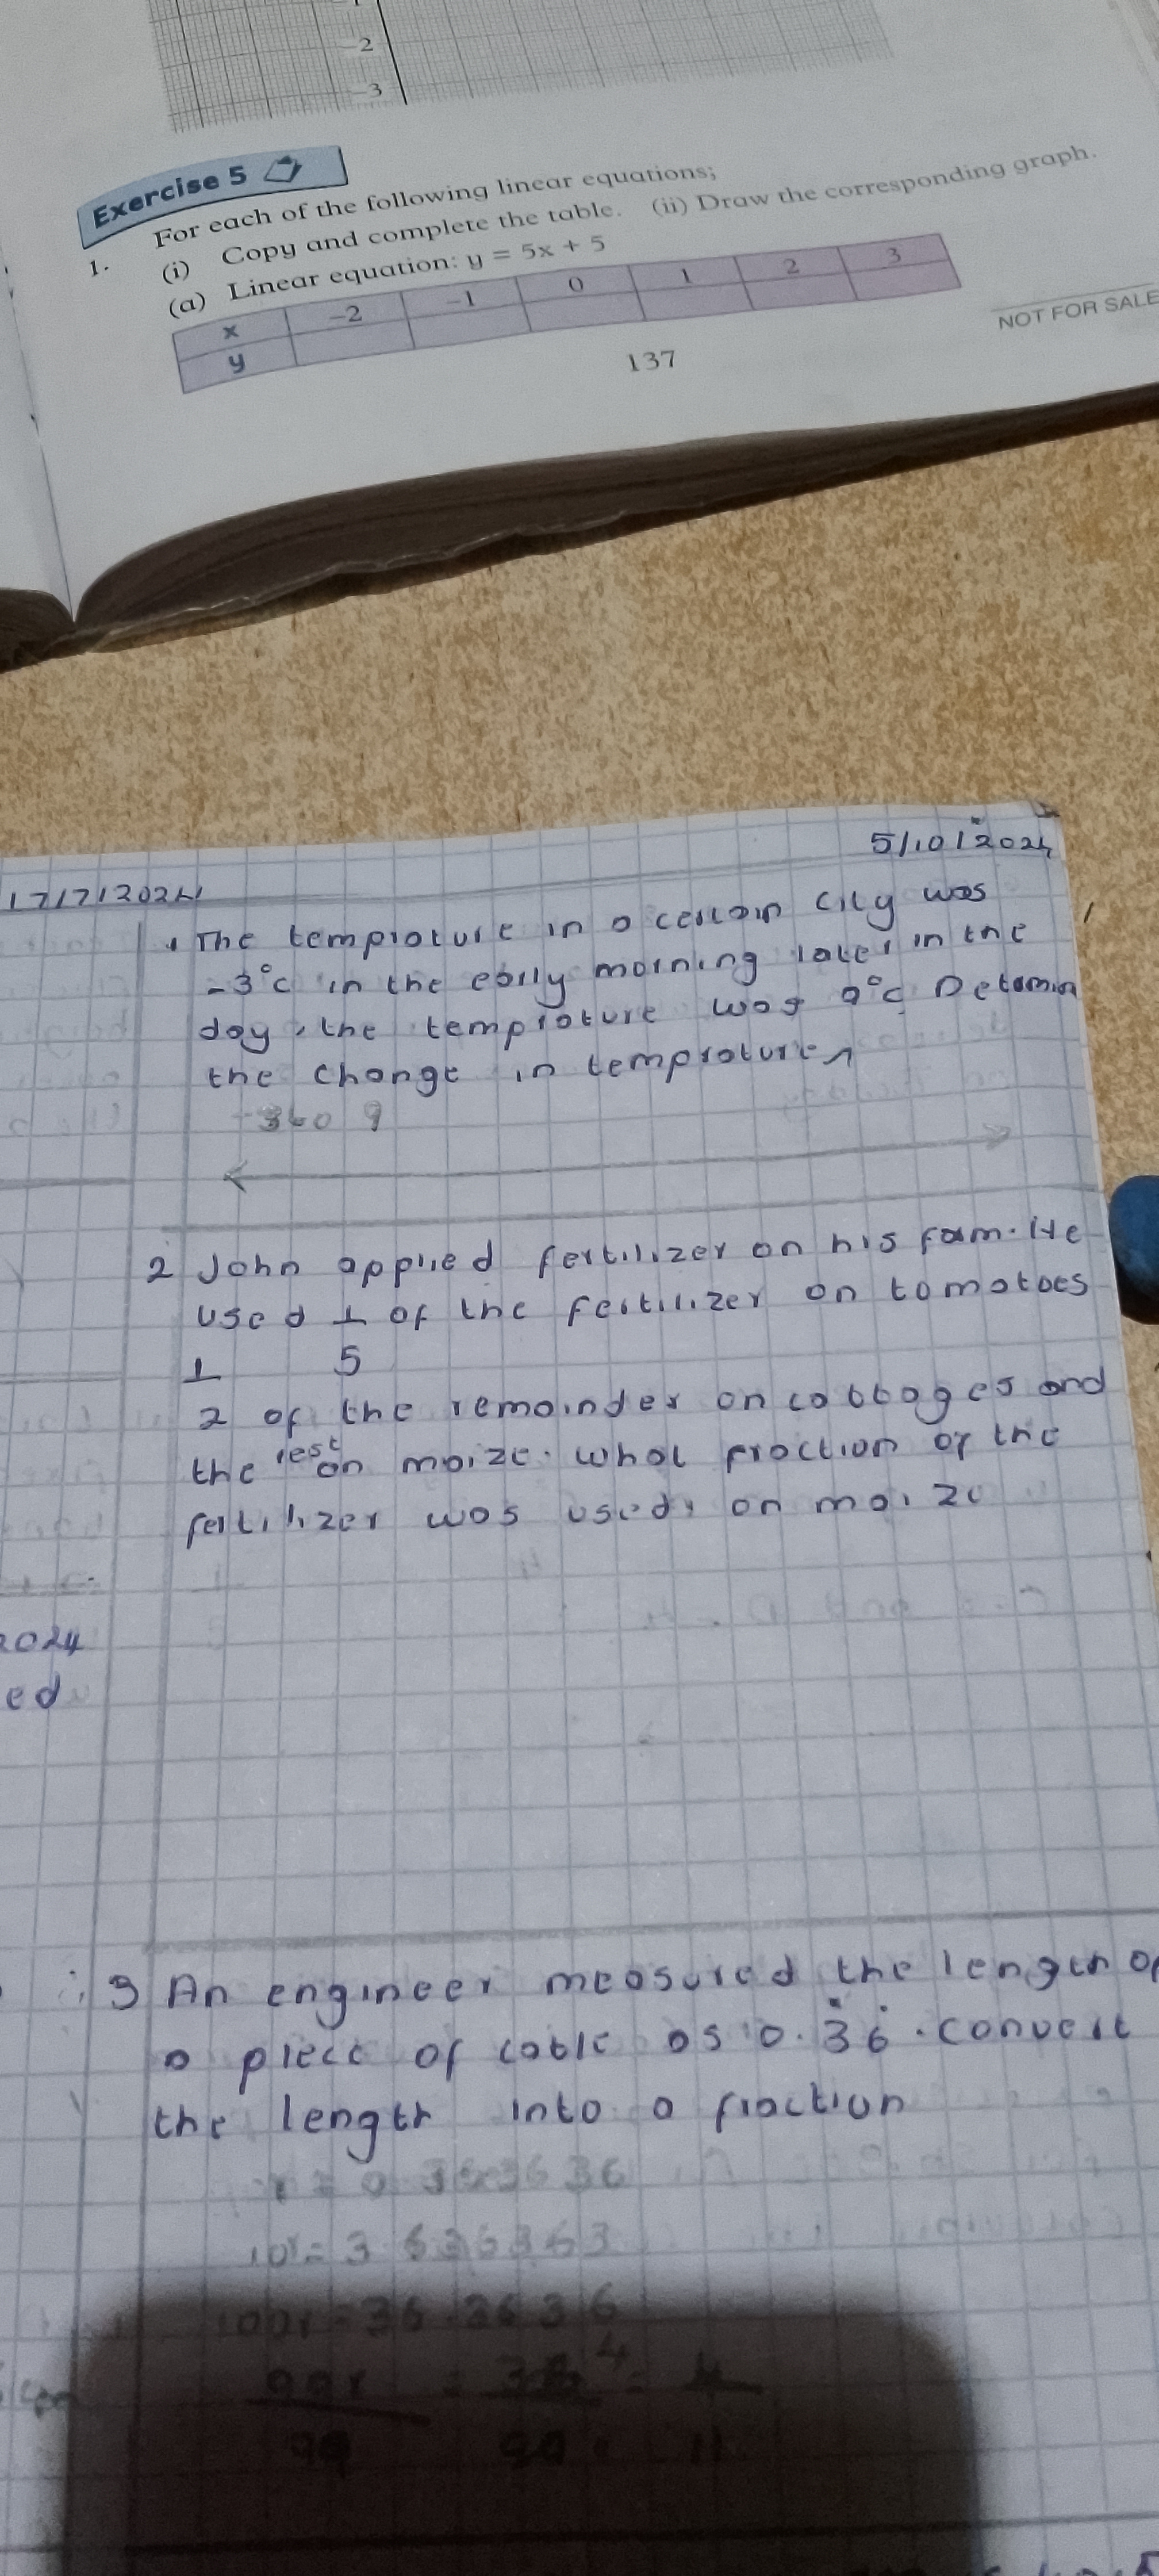 -2
-3
Exercise 5
1. For each of the following linear equations;
(i) Copy and complete the table. (ii) Draw the corresponding graph.
(a) Linear equation: y = 5x + 5
x -2 -1 0 1 2 3
y
137
NOT FOR SALE
5/10/2024
17/7/2024
1 The temprature in a certain city was
-3°c in the early morning later in the
day, the temprature was 9°c Detamin
the change in temprature
9
2 John applied fertilizer on his farm. He
used 1 of the fertilizer on tomatoes
1 5
2 of the remainder on cabbages and
the rest on maize. what fraction of the
fertilizer was used, on maize
2024
ed
3 An engineer measured the length of
a piece of cable as 0.3̇6̇. convert
the length into a fraction
x = 0 363636
10x = 3 636363
100x = 36 3636
99x = 36 4 = 4
99 99 11